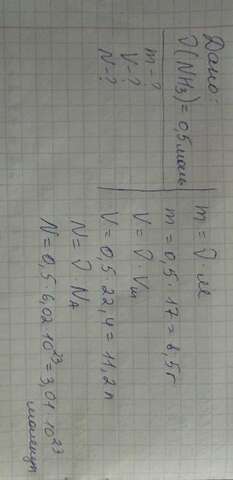 Дано:
ν(NH3) = 0,5 моль
m - ?
V - ?
N - ?
m = ν · M
m = 0,5 · 17 = 8,5 г
V = ν · Vm
V = 0,5 · 22,4 = 11,2 л
N = ν · NA
N = 0,5 · 6,02 · 10²³ = 3,01 · 10²³
молекул